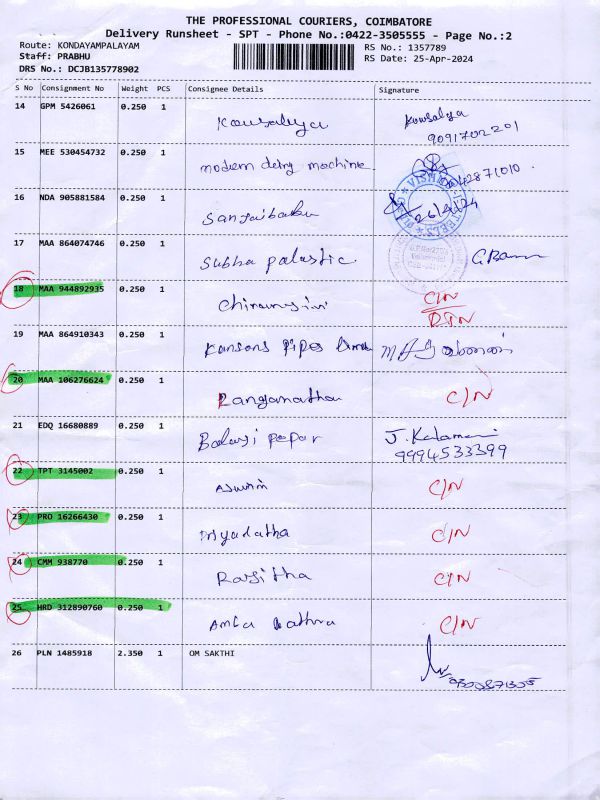 THE PROFESSIONAL COURIERS, COIMBATORE
Delivery Runsheet - SPT - Phone No.:0422-3505555 - Page No.:2
Route: KONDAYAMPALAYAM
Staff: PRABHU
DRS No.: DCJB135778902
RS No.: 1357789
RS Date: 25-Apr-2024
S No Consignment No Weight PCS Consignee Details Signature
14 GPM 5426061 0.250 1 Kousalya Kousalya
9091702201
15 MEE 530454732 0.250 1 modern machine
16 NDA 905881584 0.250 1 Sanjaibabu 26/4/24
17 MAA 864074746 0.250 1 Subha palastic
18 MAA 944892935 0.250 1 C/N
RTN
19 MAA 864910343 0.250 1 Kansons pipes
20 MAA 106276624 0.250 1 Ranganathan C/N
21 EDQ 16680889 0.250 1 Balaji papar J. Kalamani
9994533399
22 TPT 3145002 0.250 1 Aswin C/N
23 PRO 16266430 0.250 1 C/N
24 CMM 938770 0.250 1 Rajitha C/N
25 HRD 312890760 0.250 1 C/N
26 PLN 1485918 2.350 1 OM SAKTHI